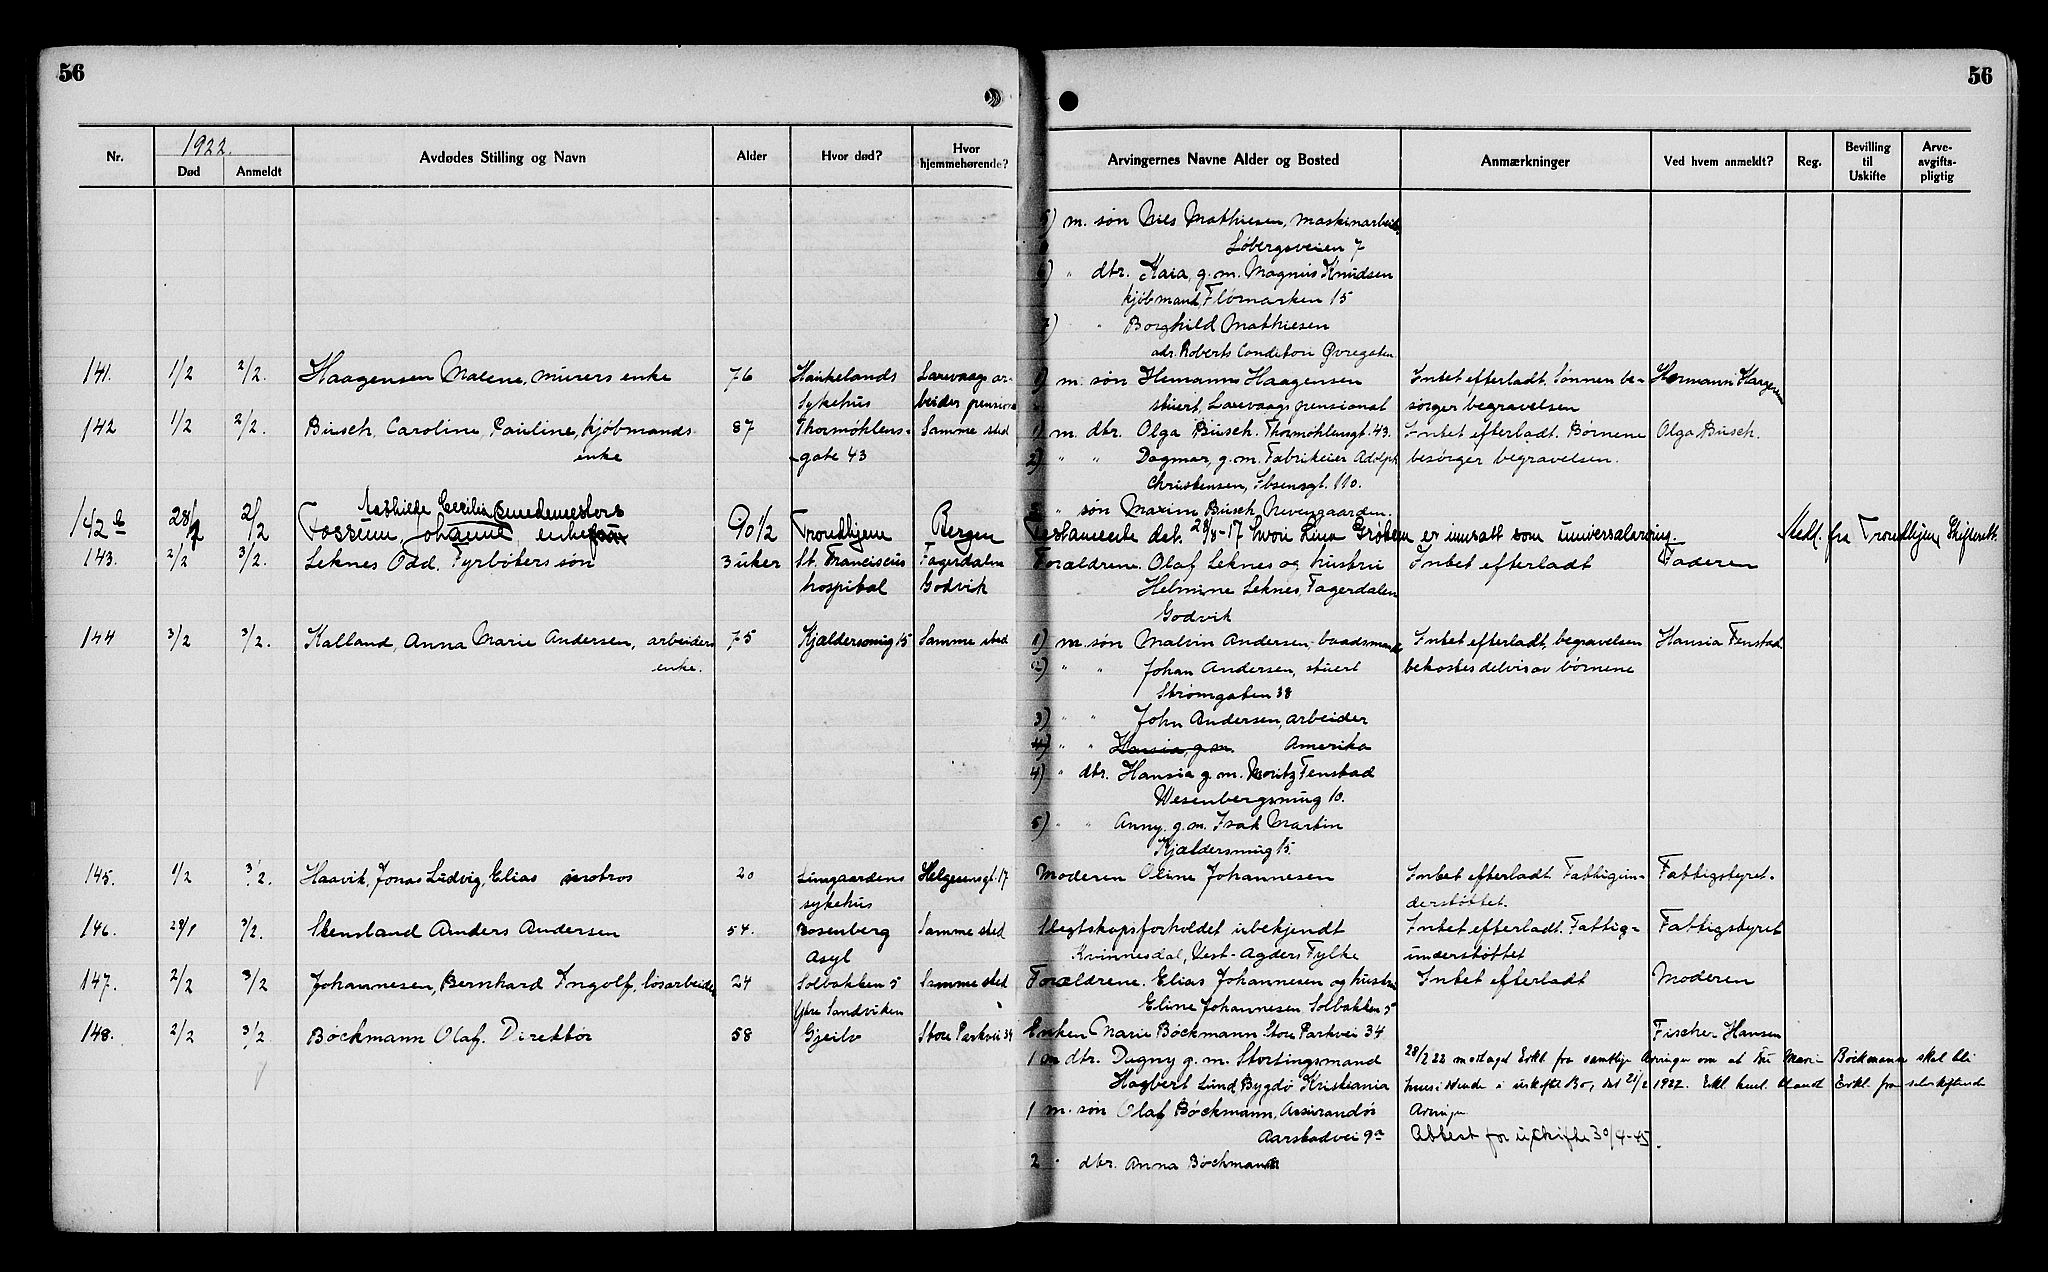 56
56
1922.
Nr.
Død
Anmeldt
Avdødes Stilling og Navn
Alder
Hvor død?
Hvor hjemmehørende?
Arvingernes Navne Alder og Bosted
Anmærkninger
Ved hvem anmeldt?
Reg.
Bevilling til Uskifte
Arve-avgifts-pligtig
5) m. søn Nils Mathiesen, maskinarbeider
Løbergsveien 7
6) " dtr. Kaia, g.m. Magnus Knudsen
kjøbmand, Flørnarken 15
7) " Borghild Mathiesen
adr. Roberts Conditori Øvregaten
141. 1/2 2/2. Haagensen Malene, murers enke 76 Haukelands Laxevaags ar- 1) m. søn Hermann Haagensen Intet efterladt. Sønnen be- Hermann Haagensen
Sykehus beider pensional stuert, Laxevaags pensional sørger begravelsen
142 1/2 2/2. Busch, Caroline, Pauline, kjøbmands 87 Thormøhlens- Samme sted 1) m. dtr. Olga Busch. Thormøhlensgt. 43. Intet efterladt. Børnene Olga Busch.
enke -gate 43 2) " " Dagmar, g.m. Fabrikeier Adolph besørger begravelsen.
Christensen, Ibsensgt. 110.
søn Maxim Busch, Nevengaarden.
Mathilde Cecilia Smedemesters
142 b 28/1 2/2 Fossum, Johanne, enke 90 1/2 Trondhjem Bergen Testamente dat. 28/8-17 hvori Lina Grøtem er innsatt som universalarving. Meld. fra Trondhjem Skifterett.
143. 2/2 3/2. Leknes Odd. Fyrbøters søn 3 uker St. Franciscus Fagerdalen Forældrene. Olaf Leknes og hustru Intet efterladt Faderen
hospital Godvik Helmine Leknes, Fagerdalen
Godvik
144 3/2 3/2. Kalland, Anna Marie Andersen, arbeiders 75 Kjældersmug 15 Samme sted 1) m. søn Malvin Andersen, baadsmand Intet efterladt, begravelsen Hansia Fenstad
enke. 2) " " Johan Andersen, stuert bekostes delvis av børnene
Strømgaten 38
3) " " John Andersen, arbeider
4) " " Hansia, g.m. Amerika
4) " dtr. Hansia g.m. Moritz Fenstad
Wesenbergsmug 10.
5) " " Anny. g.m. Isak Martin
Kjældersmug 15.
145. 1/2 3/2. Haavik, Jonas Ludvig, Elias matros 20 Lungaardens Helgesensgt. 17 Moderen Oline Johannesen Intet efterladt. Fattigun- Fattigstyret.
sykehus derstøttet.
146. 28/1 3/2. Stensland Anders Andersen 54. Rosenberg Samme sted Slegtskapsforholdet ubekjendt Intet efterladt. Fattig- Fattigstyret
Asyl Kvinnesdal, Vest-Agders Fylke understøttet
147. 2/2 3/2 Johannesen, Bernhard Ingolf, løsarbeider 24 Solbakken 5 Samme sted Forældrene. Elias Johannesen og hustru Intet efterladt Moderen
Ytre Sandviken Eline Johannesen Solbakken 5
148. 2/2 3/2 Bøckmann Olaf. Direktør 58 Gjeilo Store Parkvei 34 Enken Marie Bøckmann Store Parkvei 34 Fischer-Hansen
1 m dtr. Dagny g.m. Stortingsmand 28/2 22 mottaget Erkl. fra samtlige Arvinger om at Fru Marie Bøckmann skal bli
Hagbert Lund, Bygdø Kristiania hensiddende i uskiftet Bo, dat 21/2 1922. Erkl. henl. blandt Erkl. fra selvskiftende
1 m. søn Olaf Bøckmann, Assurandør Arvinger
Aarstadvei 9a Attest for uskifte 30/4-45.
2 " dtr. Anna Bøckmann